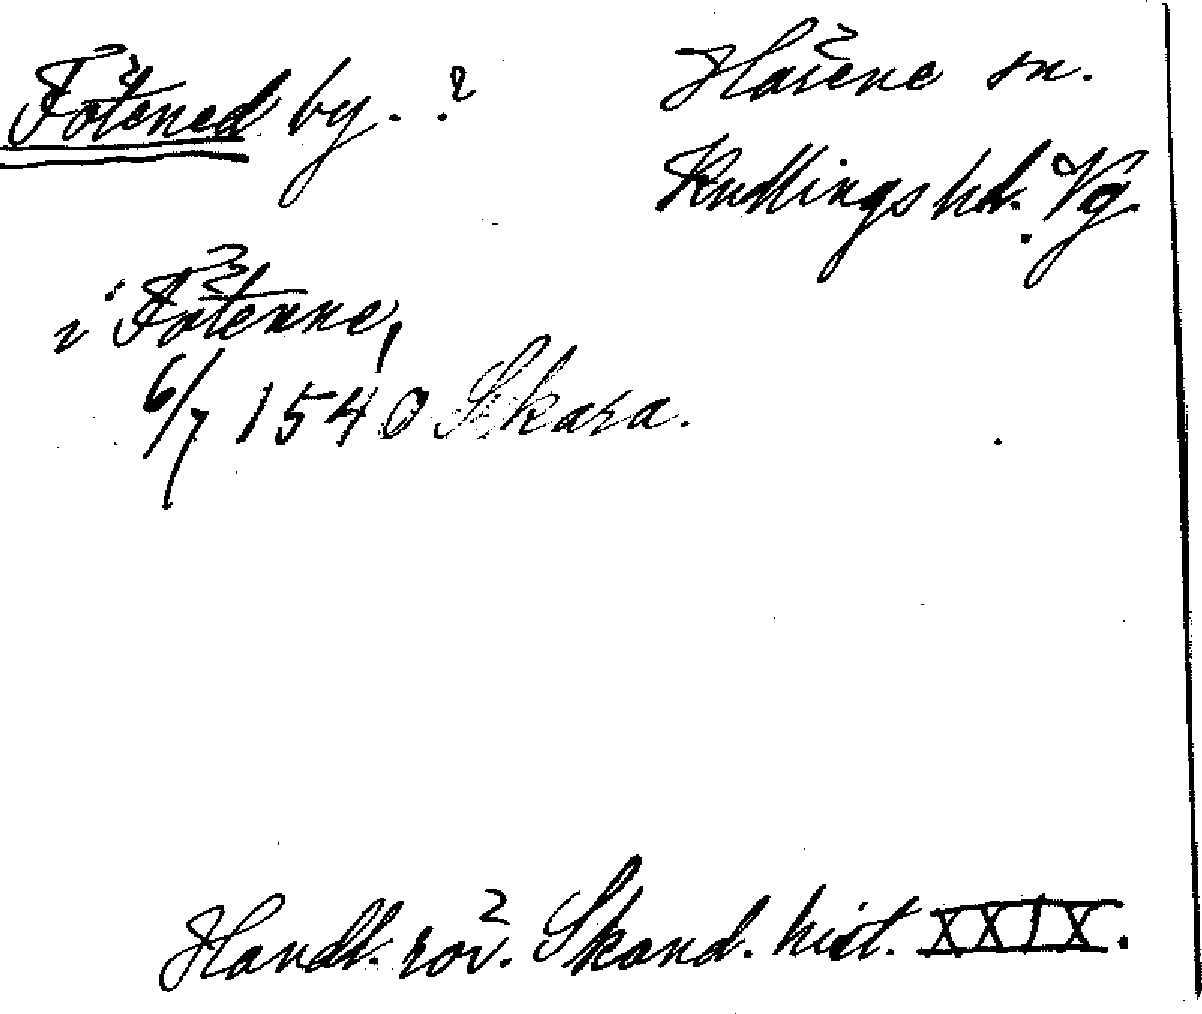 Fötened by. ?
Härene sn.
Kullings hd. Vg.
i Fötenne,
6/7 1540 Skara.
Handl. rör. Skand. hist. XXIX.